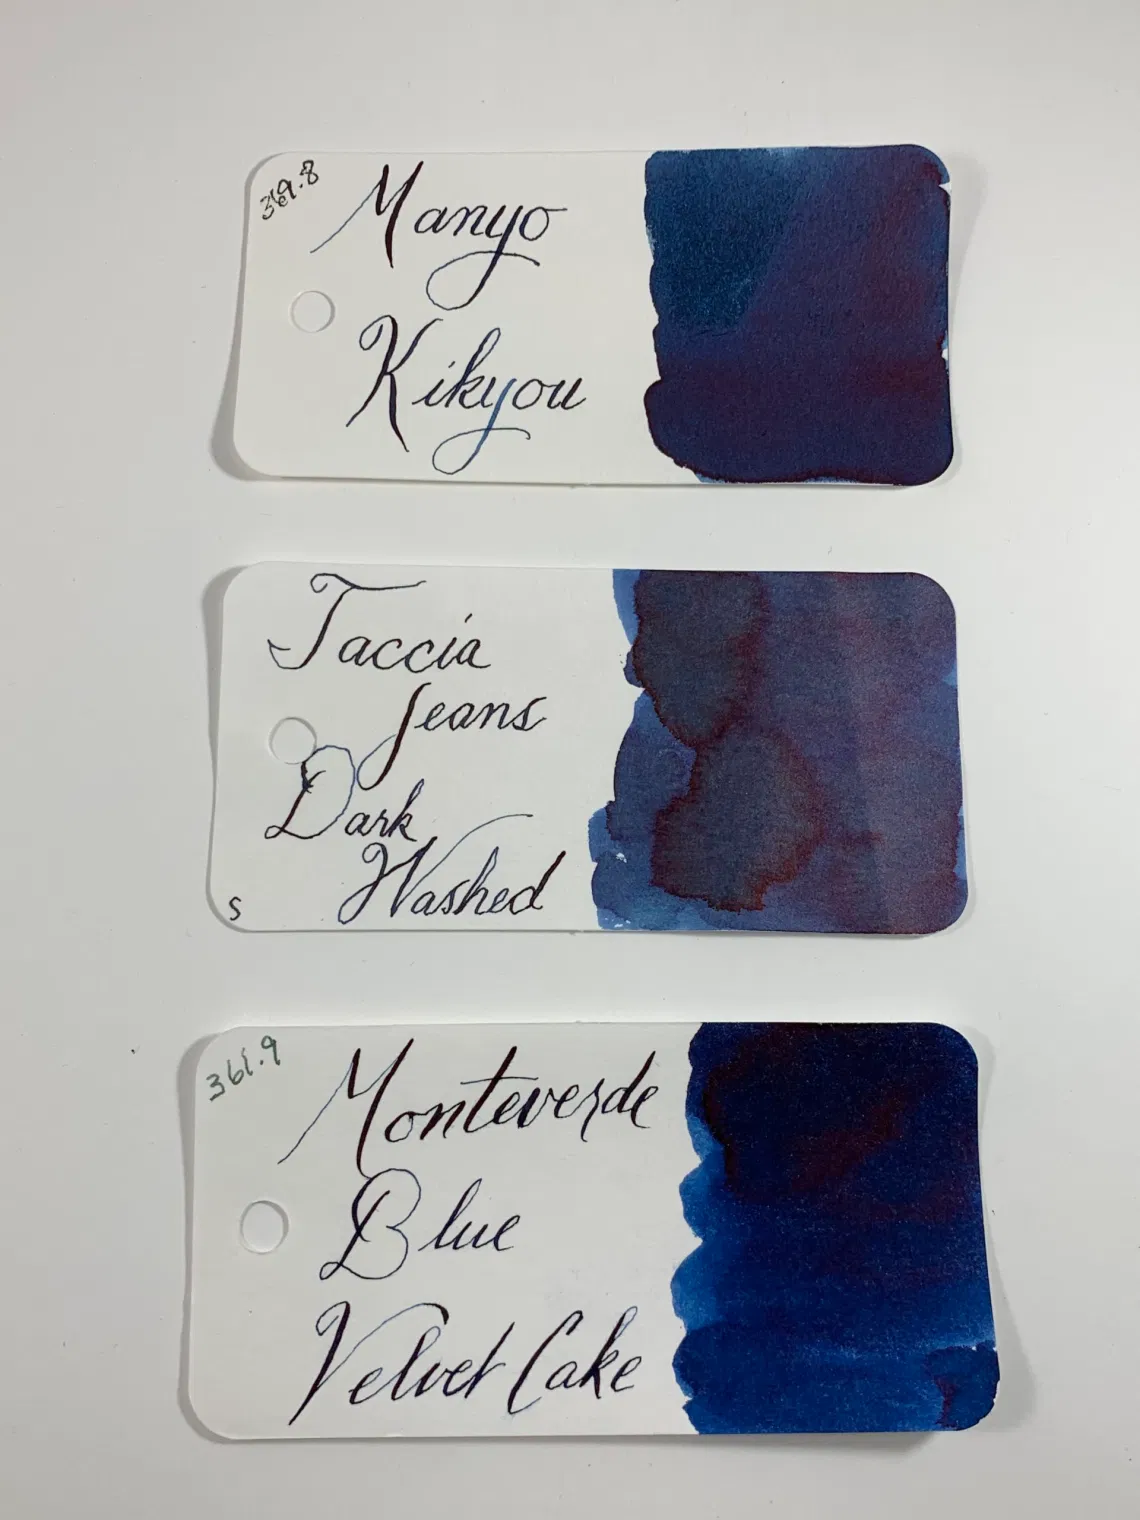 369.8
Manyo
Kikyou
Taccia
Jeans
Dark
Washed
S
361.9
Monteverde
Blue
Velvet Cake